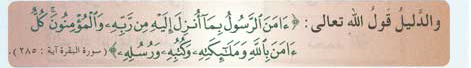 والدَّليلُ قَولُ الله تعالى: ﴿ ءَامَنَ ٱلرَّسُولُ بِمَآ أُنزِلَ إِلَيْهِ مِن رَّبِّهِۦ وَٱلْمُؤْمِنُونَ ۚ كُلٌّ
ءَامَنَ بِٱللَّهِ وَمَلَـٰٓئِكَتِهِۦ وَكُتُبِهِۦ وَرُسُلِهِۦ ﴾ (سورة البقرة آية : ٢٨٥).